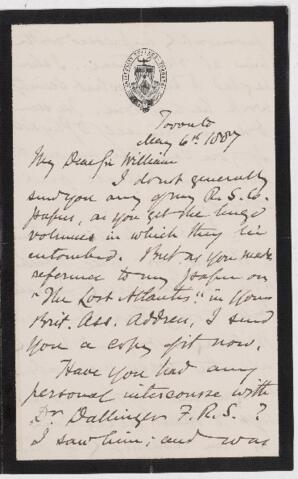 Toronto
May 6th 1887
My Dear Sir William
I do not generally
send you any of my R. S. Co.
papers, as you get the huge
volumes in which they lie
entombed. But as you made
reference to my paper on
"The Lost Atlantis," in your
Brit. Ass. Address, I send
you a copy of it now.
Have you had any
personal intercourse with
Dr Dallinger F.R.S.?
I saw him; and was